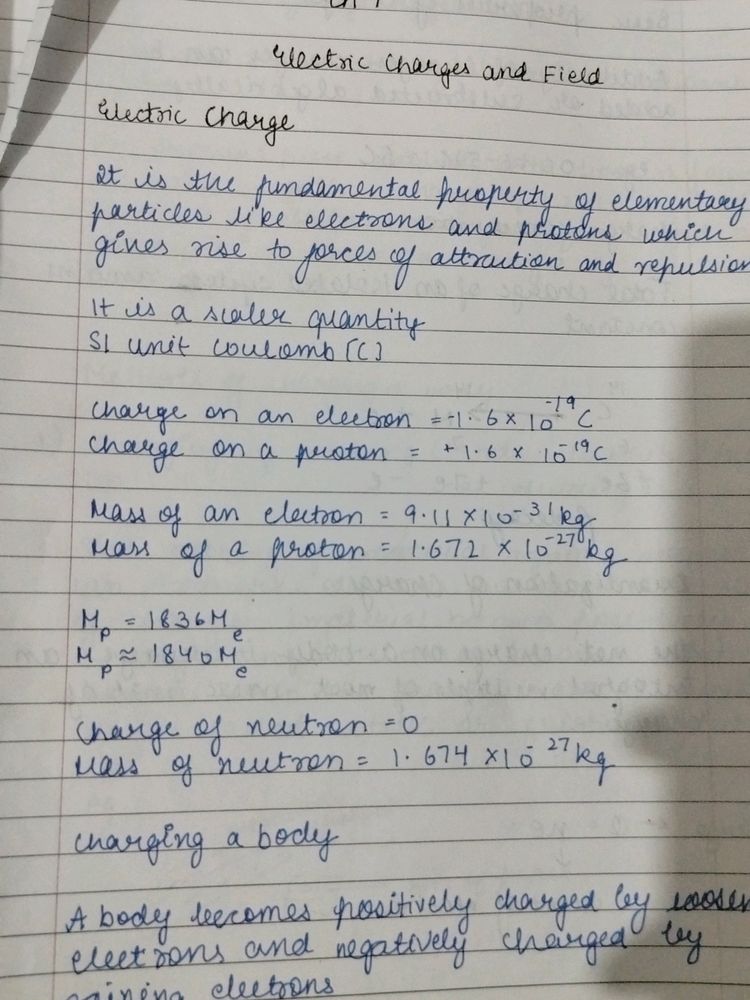 Ch 1
Electric Charges and Field
Electric Charge
It is the fundamental property of elementary
particles like electrons and protons which
gives rise to forces of attraction and repulsion
It is a scaler quantity
SI unit coulomb (C)
Charge on an electron = -1.6 × 10⁻¹⁹ C
Charge on a proton = + 1.6 × 10⁻¹⁹ C
Mass of an electron = 9.11 × 10⁻³¹ kg
Mass of a proton = 1.672 × 10⁻²⁷ kg
Mp = 1836Me
Mp ≈ 1840Me
Charge of neutron = 0
Mass of neutron = 1.674 × 10⁻²⁷ kg
Charging a body
A body becomes positively charged by
electrons and negatively charged by
gaining electrons